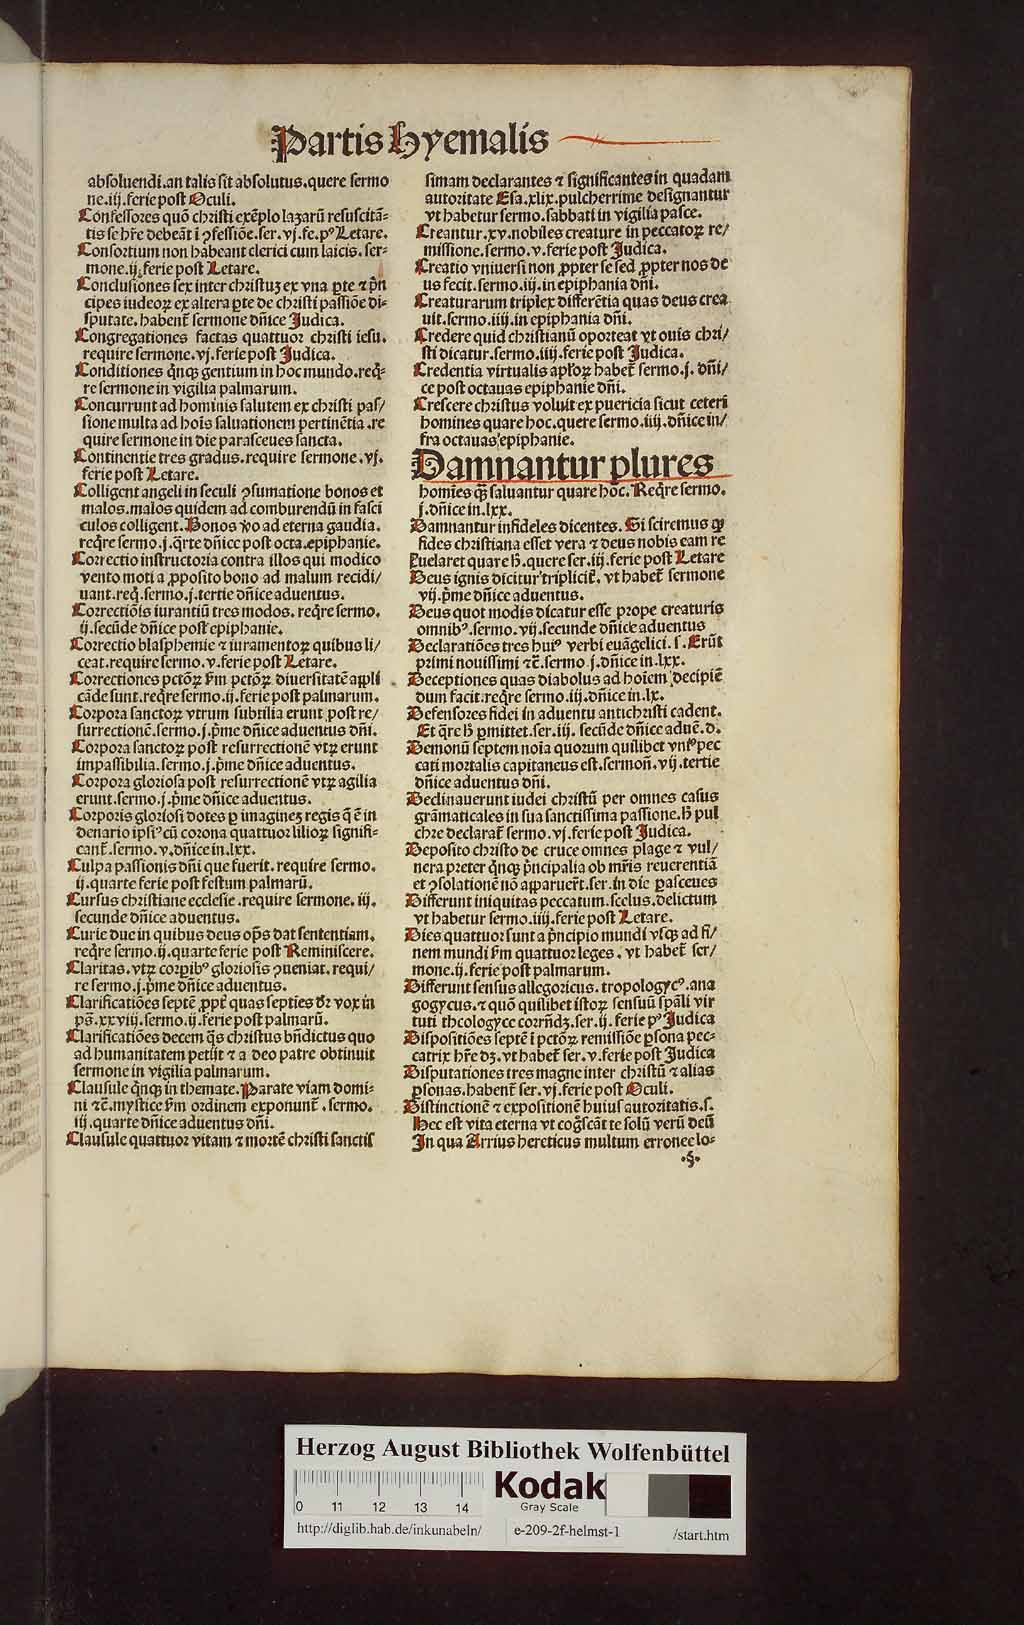 Partis Hyemalis
absoluendi.an talis sit absolutus.quere sermo
ne.iij.ferie post Oculi.
Confessores quō christi exēplo lazarū resuscitā=
tis se hr̄e debeāt ī ꝯfessiōe.ser.vj.fe.pꝰ Letare.
Consortium non habeant clerici cum laicis.ser=
mone.ij.ferie post Letare.
Conclusiones sex inter christuʒ ex vna ꝑte ⁊ pn̄
cipes iudeoꝝ ex altera ꝑte de christi passiōe di=
sputate.habent̄ sermone dn̄ice Judica.
Congregationes factas quattuor christi iesu.
require sermone.vj.ferie post Judica.
Conditiones q̇nqꝫ gentium in hoc mundo.reqͥ=
re sermone in vigilia palmarum.
Concurrunt ad hominis salutem ex christi pas/
sione multa ad hoīs saluationem pertinētia.re
quire sermone in die parasceues sancta.
Continentie tres gradus.require sermone.vj.
ferie post Letare.
Colligent angeli in seculi ꝯsumatione bonos et
malos.malos quidem ad comburendū in fasci
culos colligent.Bonos v̊o ad eterna gaudia.
reqͥre sermo.j.qͣrte dn̄ice post octa.epiphanie.
Correctio instructoria contra illos qui modico
vento moti a ꝓposito bono ad malum recidi/
uant.reqͥ.sermo.j.tertie dn̄ice aduentus.
Correctiōis iurantiū tres modos.reqͥre sermo.
ij.secūde dn̄ice post epiphanie.
Correctio blasphemie ⁊ iuramentoꝝ quibus li/
ceat.require sermo.v.ferie post Letare.
Correctiones pctōꝝ ẜm pctōꝝ diuersitatē appli
cāde sunt.reqͥre sermo.ij.ferie post palmarum.
Corpora sanctoꝝ vtrum subtilia erunt post re/
surrectionē.sermo.j.pͥme dn̄ice aduentus dn̄i.
Corpora sanctoꝝ post resurrectionē vtꝝ erunt
impassibilia.sermo.j.pͥme dn̄ice aduentus.
Corpora gloriosa post resurrectionē vtꝝ agilia
erunt.sermo.j.pͥme dn̄ice aduentus.
Corporis gloriosi dotes ꝑ imagineʒ regis q̄ ē in
denario ipsiꝰ cū corona quattuor lilioꝝ signifi=
cant̄.sermo.v.dn̄ice in.lxx.
Culpa passionis dn̄i que fuerit.require sermo.
ij.quarte ferie post festum palmarū.
Cursus christiane ecclesie.require sermone.iij.
secunde dn̄ice aduentus.
Curie due in quibus deus oꝑs dat sententiam.
reqͥre sermo.ij.quarte ferie post Reminiscere.
Claritas.vtꝝ corpibꝰ gloriosis ꝯueniat.requi/
re sermo.j.pͥme dn̄ice aduentus.
Clarificatiōes septē ꝓpt̄ quas septies dr̄ vox in
ps̄.xxviij.sermo.ij.ferie post palmarū.
Clarificatiōes decem q̄s christus bn̄dictus quo
ad humanitatem petijt ⁊ a deo patre obtinuit
sermone in vigilia palmarum.
Clausule q̇nqꝫ in themate.Parate viam domi=
ni ⁊c̄.mystice ẜm ordinem exponunt̄.sermo.
iij.quarte dn̄ice aduentus dn̄i.
Clausule quattuor vitam ⁊ mortē christi sanctis
simam declarantes ⁊ significantes in quadam
autoritate Esa.xlix.pulcherrime designantur
vt habetur sermo.sabbati in vigilia pasce.
Creantur.xv.nobiles creature in peccatoꝝ re/
missione.sermo.v.ferie post Judica.
Creatio vniuersi non ꝓpter se sed ꝓpter nos de
us fecit.sermo.iij.in epiphania dn̄i.
Creaturarum triplex differētia quas deus crea
uit.sermo.iiij.in epiphania dn̄i.
Credere quid christianū oporteat vt ouis chri/
sti dicatur.sermo.iiij.ferie post Judica.
Credentia virtualis apl̄oꝝ habet̄ sermo.j.dn̄i/
ce post octauas epiphanie dn̄i.
Crescere christus voluit ex puericia sicut ceteri
homines quare hoc.quere sermo.iiij.dn̄ice in/
fra octauas epiphanie.
Damnantur plures
homīes qͣꝫ saluantur quare hoc.Reqͥre sermo.
j.dn̄ice in.lxx.
Damnantur infideles dicentes.Si sciremus ꝙ
fides christiana esset vera ⁊ deus nobis eam re
uelaret quare h̄.quere ser.iij.ferie post Letare
Deus ignis dicitur triplicit̄.vt habet̄ sermone
vij.pͥme dn̄ice aduentus.
Deus quot modis dicatur esse prope creaturis
omnibꝰ.sermo.vij.secunde dn̄ice aduentus
Declaratiōes tres huiꝰ verbi euāgelici.s.Erūt
primi nouissimi ⁊c̄.sermo.j.dn̄ice in.lxx.
Deceptiones quas diabolus ad hoīem decipiē
dum facit.reqͥre sermo.iij.dn̄ice in.lx.
Defensores fidei in aduentu antichristi cadent.
Et qͣre h̄ ꝑmittet.ser.iij.secūde dn̄ice aduē.d.
Demonū septem noīa quorum quilibet vniꝰ pec
cati mortalis capitaneus est.sermon̄.vij.tertie
dn̄ice aduentus dn̄i.
Declinauerunt iudei christū per omnes casus
grāmaticales in sua sanctissima passione.h̄ pul
chre declarat̄ sermo.vj.ferie post Judica.
Deposito christo de cruce omnes plage ⁊ vul/
nera preter q̇nqꝫ pͥncipalia ob mr̄is reuerentiā
et ꝯsolationē nō apparuer̄t.ser.in die ꝑasceues
Differunt iniquitas peccatum.scelus.delictum
vt habetur sermo.iiij.ferie post Letare.
Dies quattuor sunt a pͥncipio mundi vsqꝫ ad fi/
nem mundi ẜm quattuor leges.vt habet̄ ser/
mone.ij.ferie post palmarum.
Differunt sensus allegoricus.tropologycꝰ.ana
gogycus.⁊ quō quilibet istoꝝ sensuū spāli vir
tuti theologyce corrn̄dʒ.ser.ij.ferie pꝰ Judica
Dispositiōes septē ī pctōꝝ remissiōe ꝑsona pec=
catrix hr̄e dʒ.vt habet̄ ser.v.ferie post Judica
Disputationes tres magne inter christū ⁊ alias
ꝑsonas.habent̄ ser.vj.ferie post Oculi.
Distinctionē ⁊ expositionē huius autoritatis.s.
Hec est vita eterna vt cog̊scāt te solū verū deū
In qua Arrius hereticus multum erronee lo=
Herzog August Bibliothek Wolfenbüttel
0 11 12 13 14
Kodak
Gray Scale
http://diglib.hab.de/inkunabeln/ e-209-2f-helmst-1 /start.htm